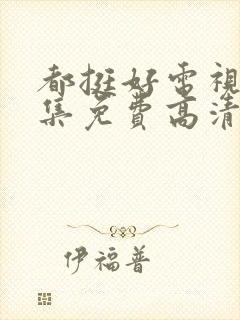 都挺好电視
集免費高清
伊福普